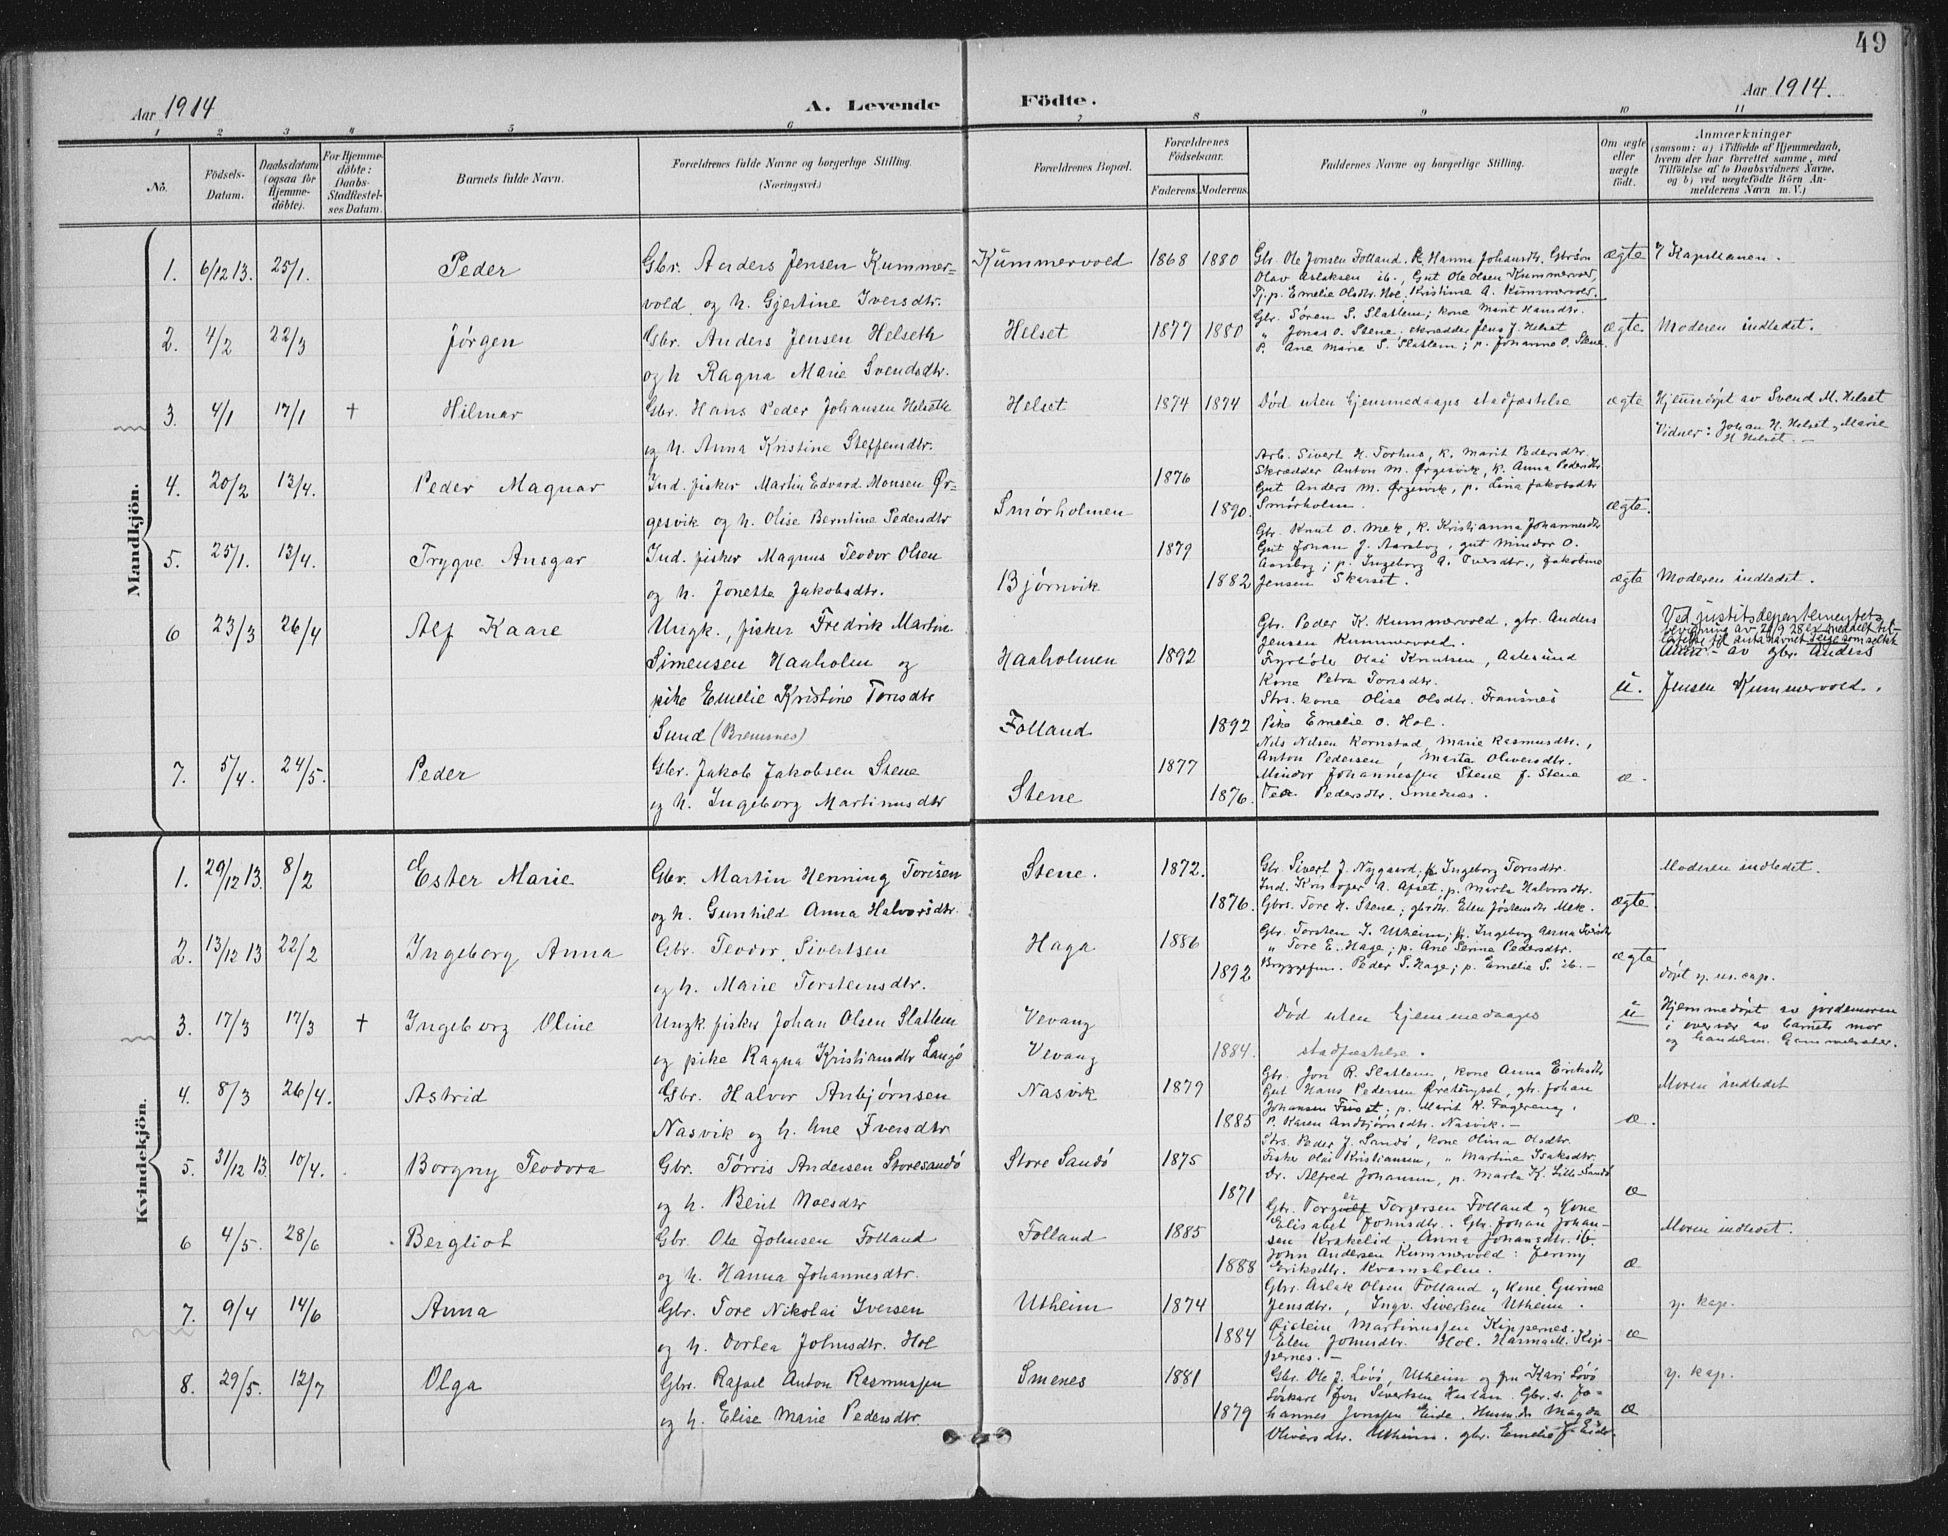 49
Aar 1914
A. Levende Födte.
Aar 1914.
1 2 3 4 5 6 7 8 9 10 11
No.
Födsels-Datum.
Daabsdatum (ogsaa for Hjemme-döbte).
For Hjemme-döbte: Daabs-Stadfæstel-ses Datum.
Barnets fulde Navn.
Forældrenes fulde Navne og borgerlige Stilling.
(Næringsvei.)
Forældrenes Bopæl.
Forældrenes Födselsaar.
Faderens. Moderens.
Faddernes Navne og borgerlige Stilling.
Om ægte eller uægte födt.
Anmærkninger
(saasom: a) i Tilfælde af Hjemmedaab,
hvem der har forrettet samme, med
Tilföielse af to Daabsvidners Navne,
og b) ved uægtefödte Börn An-
melderens Navn m. V.)
Mandkjön.
1. 6/12 13. 25/1. Peder
Gbr. Anders Jensen Kummer-
vold og h. Gjertine Iversdtr.
Kummervold 1868 1880
Gbr. Ole Jonsen Folland. k. Hanna Johansdtr. Gbrsøn
Olav Aslaksen ib., Gut Ole Olsen Kummervold
Tj. p. Emelie Olsdtr. Hol. Kristine A. Kummervold.
ægte
I Kapstuanen.
2. 4/2 22/3 Jørgen
Gbr. Anders Jensen Helseth
og h Ragna Marie Svendsdtr.
Helset 1877 1880
Gbr. Søren S. Slatlem; kone Marit Hansdtr.
" Jonas O. Stene. skrædder Jens J. Helset
P. Ane Marie S. Slatlem; p. Johanne O. Stene.
ægte.
Moderen indledet.
3. 4/1 17/1 + Hilmar
Gbr. Hans Peder Johansen Helseth
og h. Anna Kristine Steffensdtr.
Helset 1874 1874
Død uten hjemmedaaps stadfæstelse
ægte
Hjemmedøpt av Svend M. Helset
Vidner: Johan H. Helset, Marie
H Helset. –
4. 20/2 13/4. Peder Magnar
Ind. fisker Martin Edvard Monsen Ør-
gesvik og h. Olise Berntine Pedersdtr
Smørholmen 1876 1890.
Arb. Sivert H. Torhus, k. Marit Pedersdtr.
Skrædder Anton M. Ørgesvik, k. Anna Pedersdtr
Gut Anders M. Ørgesvik, p. Lina Jakobsdtr
Smørholm.
ægte.
5. 25/1. 13/4. Trygve Ansgar
Ind. fisker Magnus Teodor Olsen
og h. Jonetta Jakobsdtr.
Bjørnvik 1879 1882
Gbr. Knut O. Mek, k. Kristianna Johannesdtr
Gut Johan J. Aarsbog, gut Mindor O.
Aarsbog; p. Ingeborg A. Iversdtr., Jakobine
Jensen Skarset.
ægte
Moderen indledet.
6 23/3 26/4 Alf Kaare
Ungk., fisker Fredrik Martin
Simensen Haaholm og
pike Emelie Kristine Toresdtr
Sund (Bremsnes)
Haaholmen 1892
Folland 1892
Gbr. Peder K. Kummervold, gbr. Anders
Jensen Kummervold.
Fyrbøter Olai Knutsen, Aalesund
Kone Petra Toresdtr.
Strs. kone Olise Olsdtr. Fransnes
Pike Emelie O. Hol.
u.
Ved justitsdepartementets
bevilgning av 21/9 28 er meddelt til-
av gbr. Anders
Jensen Kummervold.
7. 5/4. 24/5. Peder
Gbr. Jakob Jakobsen Stene
og h. Ingeborg Martinusdtr
Stene 1877 1876.
Nils Nilsen Kornstad, Marie Rasmusdtr.,
Anton Pedersen, Marta Oliversdtr.
Mindor Johannessen Stene f. Stene
Pedersdtr. Smednes.
æ.
Kvindekjön.
1. 29/12 13. 8/2 Ester Marie
Gbr. Martin Henning Toresen
og h. Gunhild Anna Halvorsdtr.
Stene. 1872. 1876.
Gbr Sivert J. Nygaard; k Ingeborg Toresdtr.
Ind. Kristofer A. Afset; p. Marta Halvorsdtr.
Gbrs. Tore H. Stene; gbrdtr. Elen Jøstensdtr Mek.
ægte.
Moderen indledet.
2. 13/12 13 22/2 Ingeborg Anna
Gbr. Teodor Sivertsen
og h. Marie Torsteinsdtr.
Haga 1886 1892
Gbr. Torsten T. Utheim; k. Ingeborg Anna Iversdtr
" Tore E. Hage; p. Ane Serine Pedersdtr.
Peder S. Hage; p. Emelie S. ib. –
ægte
døpt y. us. cap.
3. 17/3 17/3 + Ingeborg Oline
Ungk. fisker Johan Olsen Slatlem
og pike Ragna Kristiansdtr Langø
Vevang
Vevang 1884.
Død uten hjemmedaaps
stadfæstelse.
u
Hjemmedøpt av jordmoren
i overvær av barnets mor
4. 8/3 26/4. Astrid
Gbr. Halvor Anbjørnsen
Nasvik og h. Ane Iversdtr
Nasvik 1879 1885
Gbr. Jon R. Slatlem, kone Anna Eriksdtr
Gut Hans Pedersen Ørstingset, gbr. Johan
Johansen Furset; p. Marit K. Fagereng,
P. Karen Andbjørnsdtr. Nasvik. –
æ.
Moren indledet
5. 31/12 13. 10/4. Borgny Teodora
Gbr. Tørris Andersen Storesandø
og h. Berit Moesdtr
Store Sandø 1875 1871
Strs. Peder J. Sandø, kone Olina Olsdtr.
Fisker Olai Kristiansen, " Martine Isaksdtr.
Dr. Alfred Johansen, p. Marta K. Lille-Sandø
æ
6 4/5. 28/6 Bergliot
Gbr. Ole Johnsen Folland
og h. Hanna Johannesdtr.
Folland 1885 1888
Gbr. Torger Torgersen Folland og kone
Elisabet Johnsdtr. Gbr. Johan Johan-
sen Krakelid. Anna Johansdtr. ib.
John Andersen Kummervold: Jenny
Eriksdtr. Kvamsholm.
æ
Moren indledet.
7. 9/4 14/6 Anna
Gbr. Tore Nikolai Iversen
og h. Dortea Johnsdtr. Hol
Utheim 1874 1884
Gbr. Aslak Olsen Folland og kone Gurine
Jensdtr., Ingv. Sivertsen Utheim.
Øistein Martinussen Kippernes.
Elen Johnsdtr. Hol. Kip-
pernes. –
æ
y. kap.
8. 29/5. 12/7 Olga
Gbr. Rafael Anton Rasmussen
og h. Elise Marie Pedersdtr.
Smenes 1881 1879
Gbr. Ole J. Løvø, Utheim og fru Kari Løvø
Jon Sivertsen. Gbr. s. Jo-
hannes Jonssen Eide. Magda
Oliversdtr. Utheim. gbr. Emelie J. Eide.
æ
y. kap.